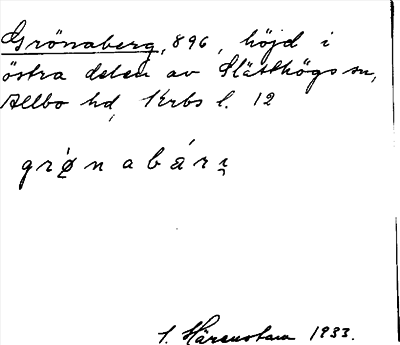 Grönaberg, 896, höjd i
östra delen av Slätthögs sn,
Allbo hd, Krbs l. 12
grø̀nabári̯
1933.